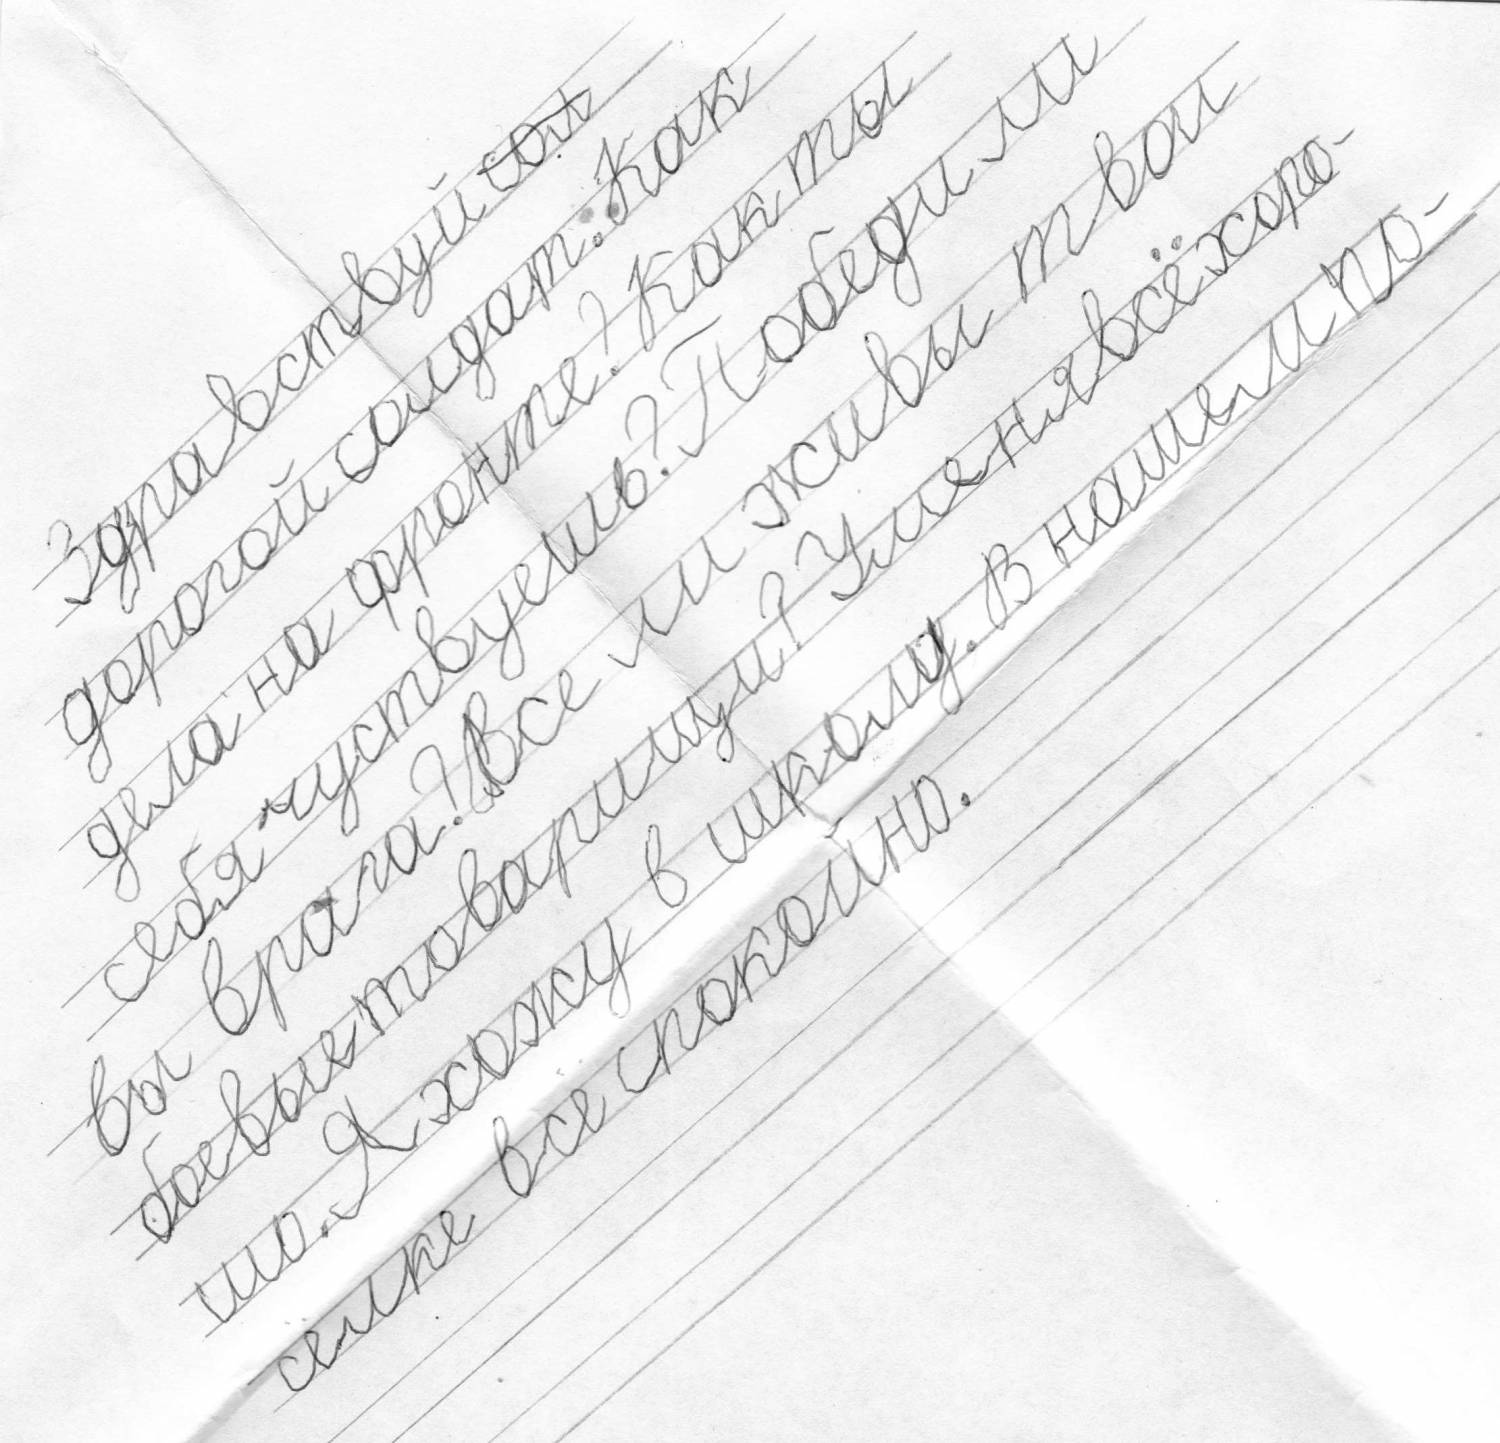 Здравствуй сол
дорогой солдат. Как
дела на фронте? Как ты
себя чуствуешь? Победили
вы врага? Все ли живы твои
боевые товарищи? У меня всё хоро-
шо. Я хожу в школу. В нашем по-
селке все спокойно.